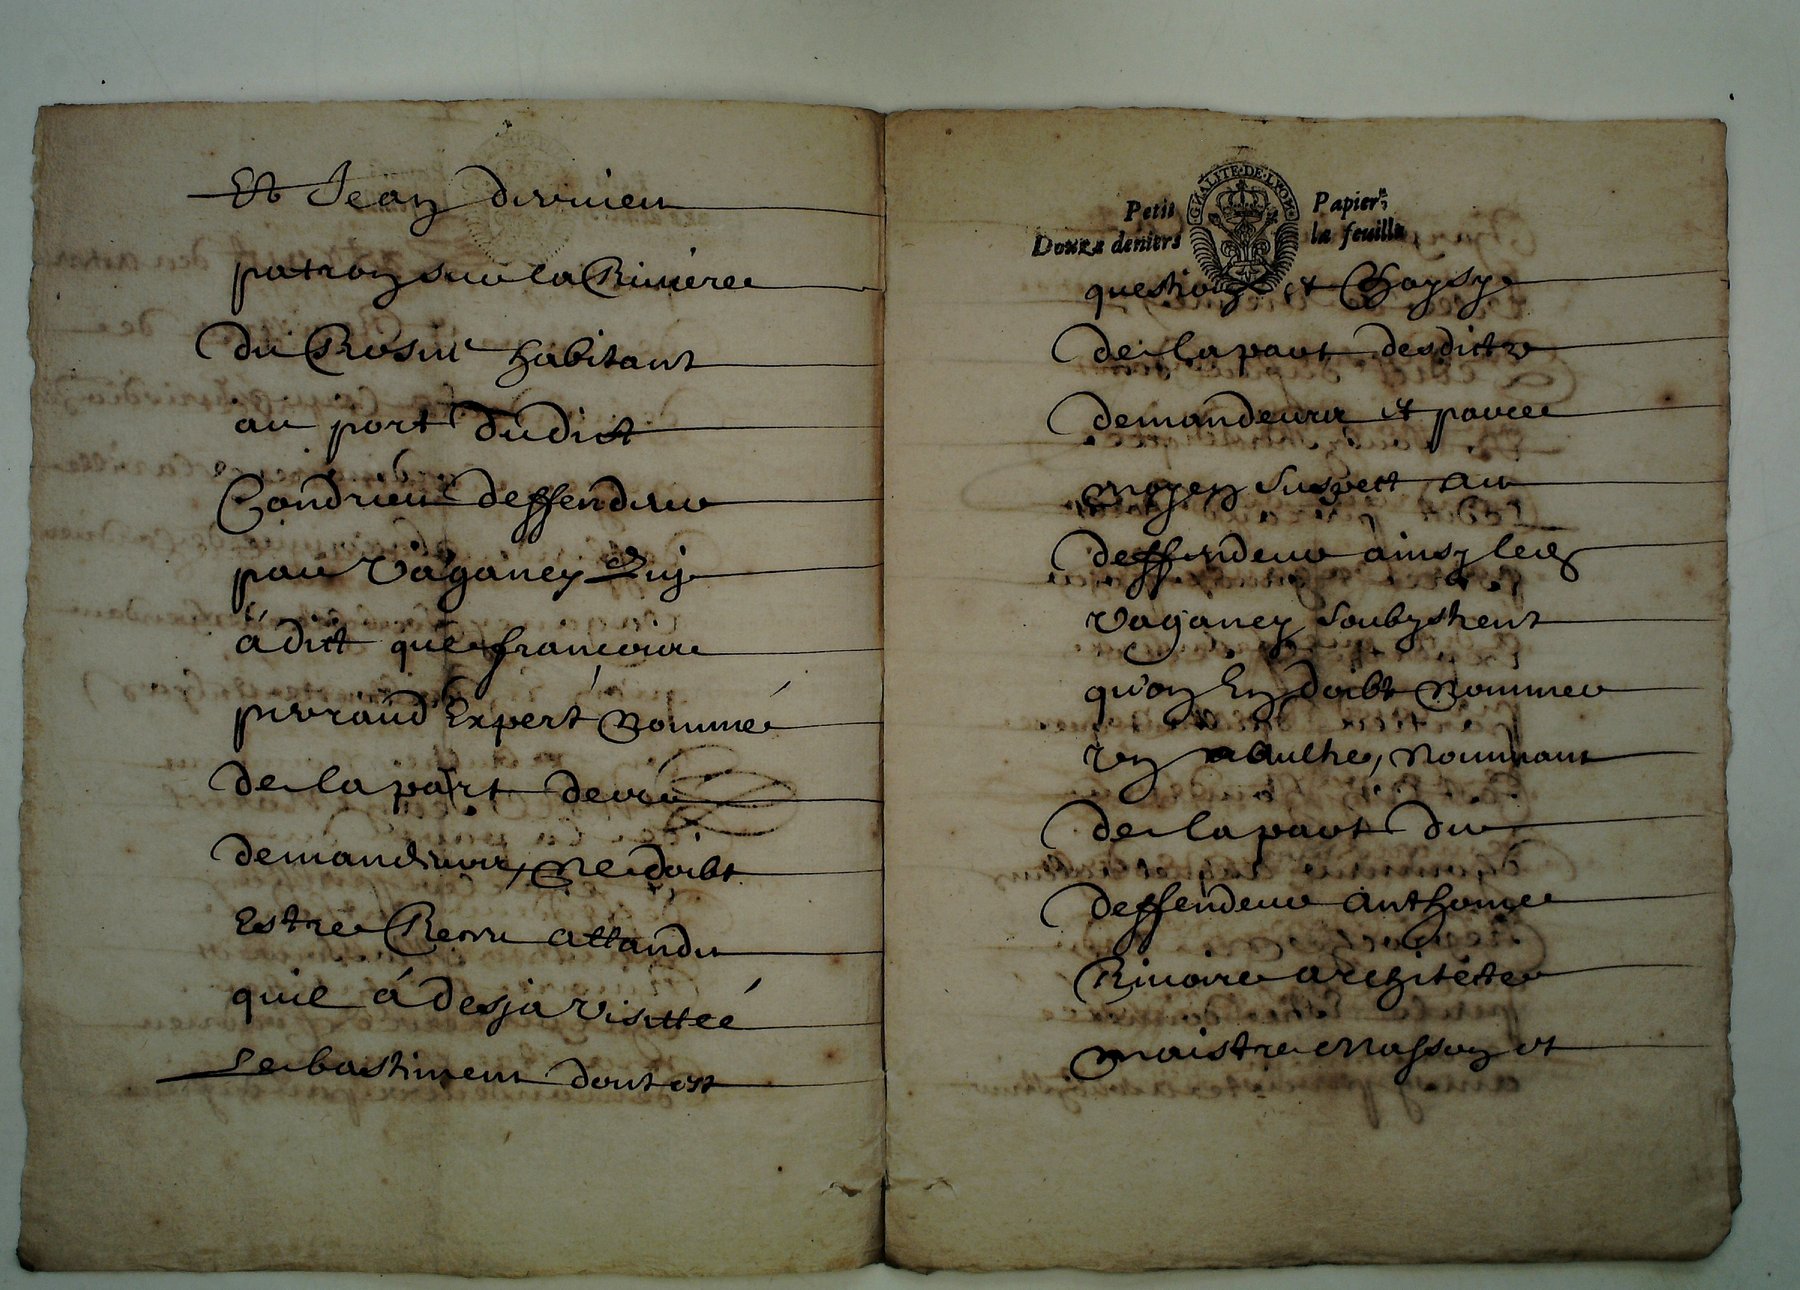 Et Jean dervieu
patron sur la Riviere
du Rosne habitant
au port dudict
Condrieu deffendeur
par Vaganey quy
à dict que francois
perraud Expert nommé
de la part des
demandeurs, ne doibt
Estre Receu attandu
quil à desja visitteé
le bastiment dont est
GNALITE·DE·LYON
Petit Papier
Douze deniers la feuille
question et Choysy
de la part desdicts
demandeurs et par ce
moyen suspect au
deffendeur ainsy led
Vaganey soubystient
qu'on En doibt nommer
Un aulthe, nommant
de la part du
deffendeur anthoine
Rivoire architecte
maistre masson et